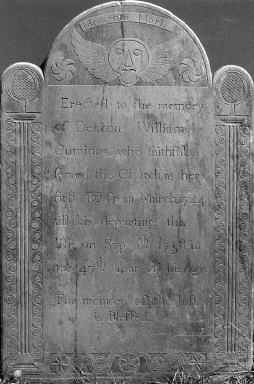 Memento Mori
Erected to the memory
of Deacon William
Cumings, who faithfully
served this Church, as her
first Dn. from March, 1744
till his departing this
life, on Sep. 1758 in
the 47th. year of his Age.
The memory of the Just
is Blessed.